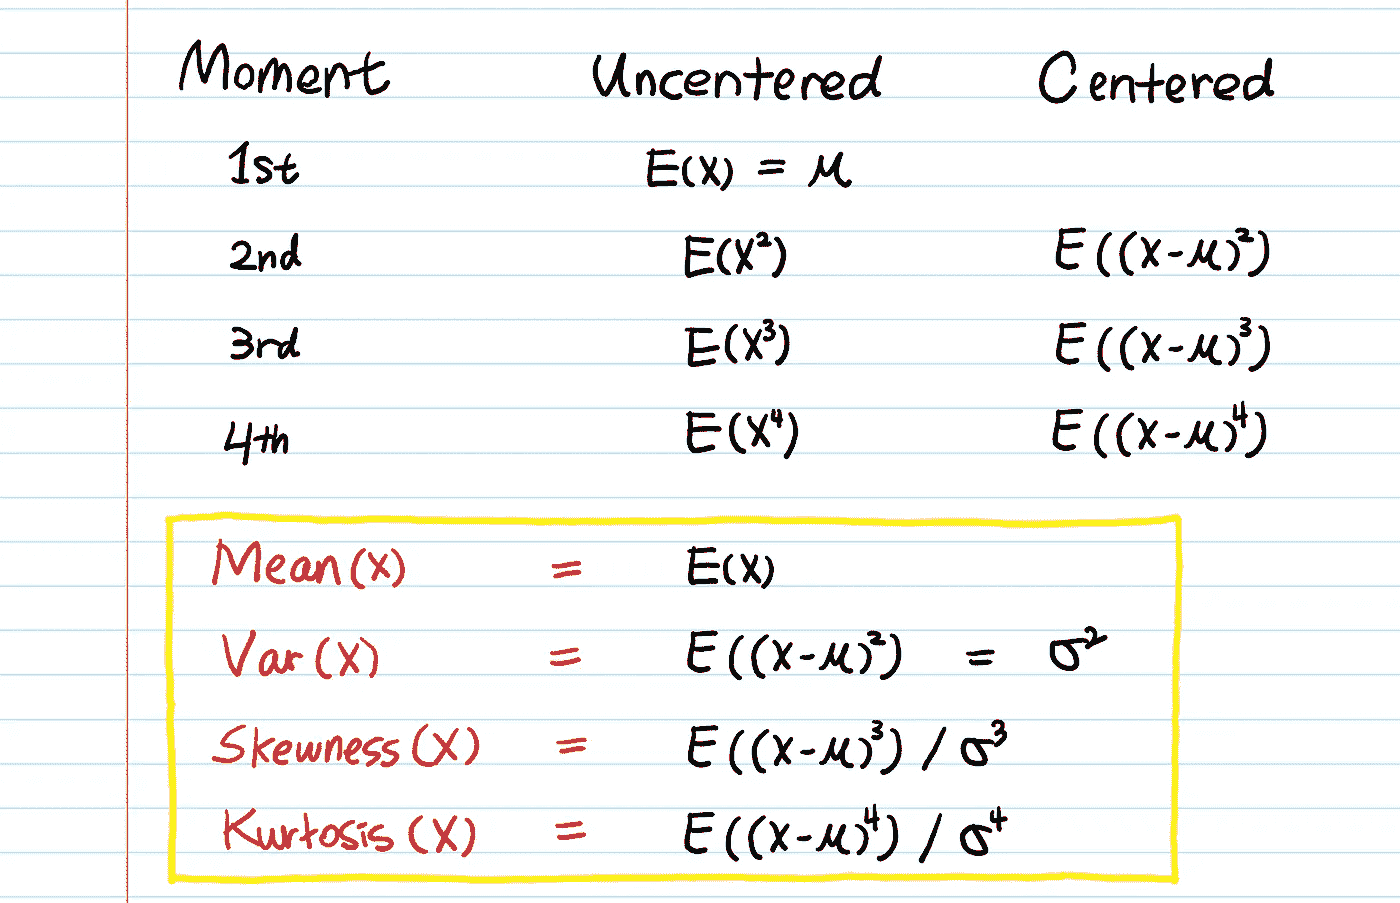 Moment Uncentered Centered
1st E(X) = μ
2nd E(X²) E((X-μ)²)
3rd E(X³) E((X-μ)³)
4th E(X⁴) E((X-μ)⁴)
Mean(X) = E(X)
Var(X) = E((X-μ)²) = σ²
Skewness(X) = E((X-μ)³) / σ³
Kurtosis(X) = E((X-μ)⁴) / σ⁴